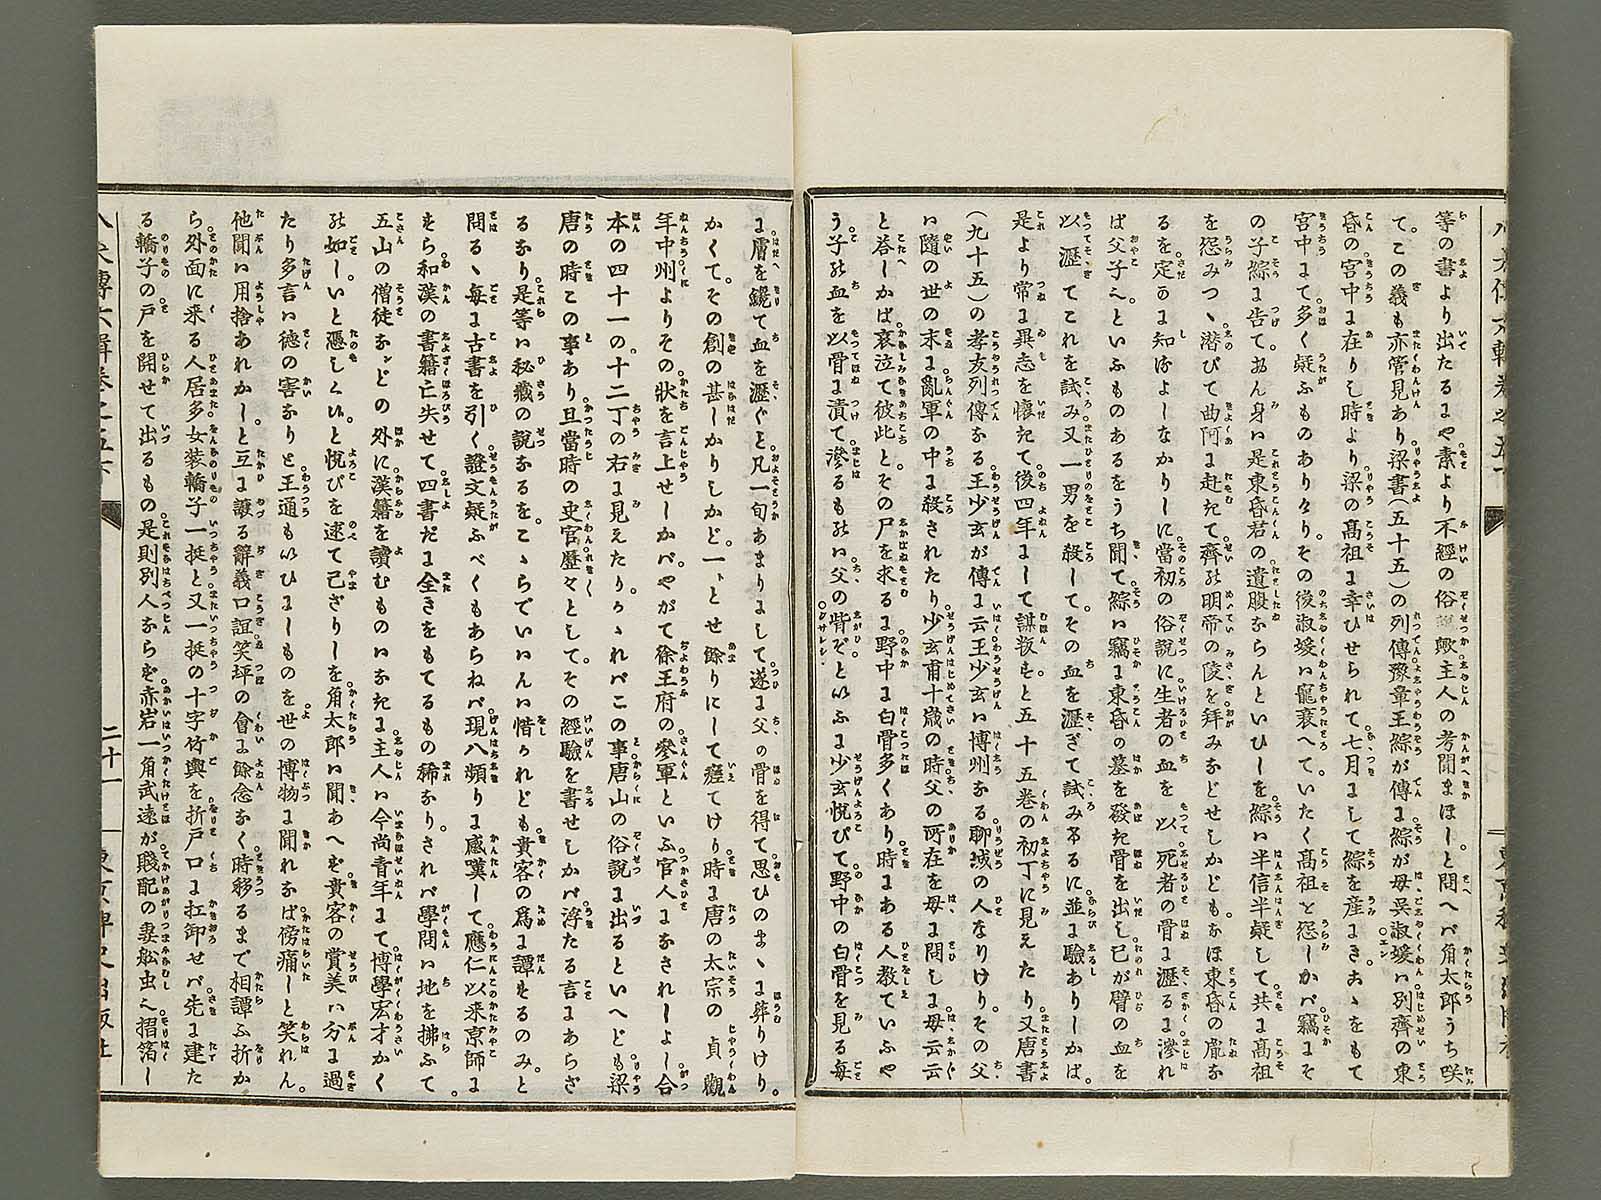 等の書より出たるにや素より不經の俗説歟主人の考聞まほしと問へバ角太郎うち咲
てこの義も亦管見あり梁書(五十五)の列傳豫章王綜が傳に綜が母呉淑媛ハ別齊の東
昏の宮中に在りし時より梁の髙祖に幸ひせられて七月にして綜を産にきあゝをもて
宮中にて多く疑ふものありけりその後淑媛ハ寵衰へていたく髙祖を怨しかバ竊にそ
の子綜に告てあん身ハ是東昏君の遺腹ならんといひしを綜ハ半信半疑して共に髙祖
を怨みつゝ潜びて曲阿に赴きて齊の明帝の陵を拜みなどせしかどもなほ東昏の胤な
るを定かに知るよしなかりしに當初の俗説に生者の血を以死者の骨に瀝るに滲れ
ば父子之といふものあるをうち聞て綜ハ竊に東昏の墓を發き骨を出し已が臂の血を
以瀝てこれを試み又一男を殺してその血を瀝ぎて試みるに並に驗ありしかば。
是より常に異志を懷きて後四年にして謀叛すと五十五巻の初丁に見えたり又唐書
(九十五)の孝友列傳なる王少玄が傳に云王少玄ハ博州なる聊城の人なりけり。その父
ハ隨の世の末に亂軍の中に殺されたり少玄甫十歳の時父の所在を母に問しに母云云
と荅しかば哀泣て彼此とその尸を求るに野中に白骨多くあり時にある人教ていふや
う子の血を以骨に漬て滲るものハ父の骴ぞといふに少玄悦びて野中の白骨を見る毎
に膚を鑱て血を瀝ぐと凡一旬あまりにして遂に父の骨を得て思ひのまゝに葬りけり。
かくてその創の甚しかりしかど一トとせ餘りにして瘥てけり時に唐の太宗の貞觀
年中州よりその状を言上せしかバやがて徐王府の參軍といふ官人になされしよし合
本の四十一の十二丁の右に見えたりかゝれバこの事唐山の俗説に出るといへども梁
唐の時この事あり且當時の史官歴々としてその經驗を書せしかバ浮たる言にあらざ
るなり是等ハ秘藏の説なるをこゝらでいいんハ惜けれども貴客の爲に譚するのみと
問るゝ毎に古書を引く證文疑ふべくもあらねバ現八頻りに感嘆して應仁以来京師に
すら和漢の書籍亡失せて四書だに全きをもてるもの稀なりされバ學問ハ地を拂ふて。
五山の僧徒などの外に漢籍を讀むものハなきに主人ハ今尚青年にて博學宏才かく
の如しいと憑しくハと悦びを速て已ざりしを角太郎ハ聞あへず貴客の賞美ハ分に過
たり多言ハ德の害なりと王通もいひにしものを世の博物に聞れなば傍痛しと笑れん。
他聞ハ用捨あれかしと互に讓る辭義口誼笑坪の會に餘念なく時移るまで相譚ふ折か
ら外面に来る人居多女装轎子一挺と又一挺の十字竹輿を折戸口に扛卸せバ先に建た
る轎子の戸を開せて出るもの是則別人ならず赤岩一角武遠が賤配の妻舩虫之摺箔し
二十一